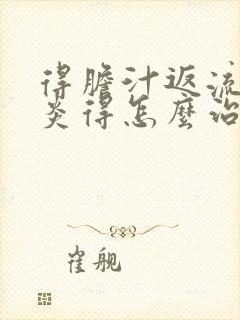 得膽汁返流
炎得怎麼治
崔舰